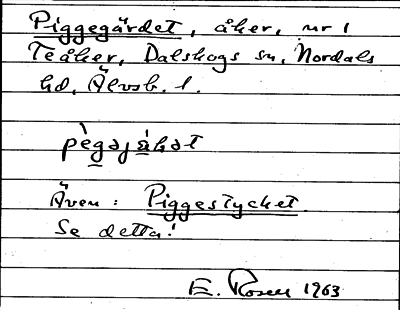 Piggegärdet, åker, nr 1
Teåker, Dalskogs sn, Nordals
hd, Älvsb. l.
Även: Piggestycket.
Se detta!
E. Rosén 1963